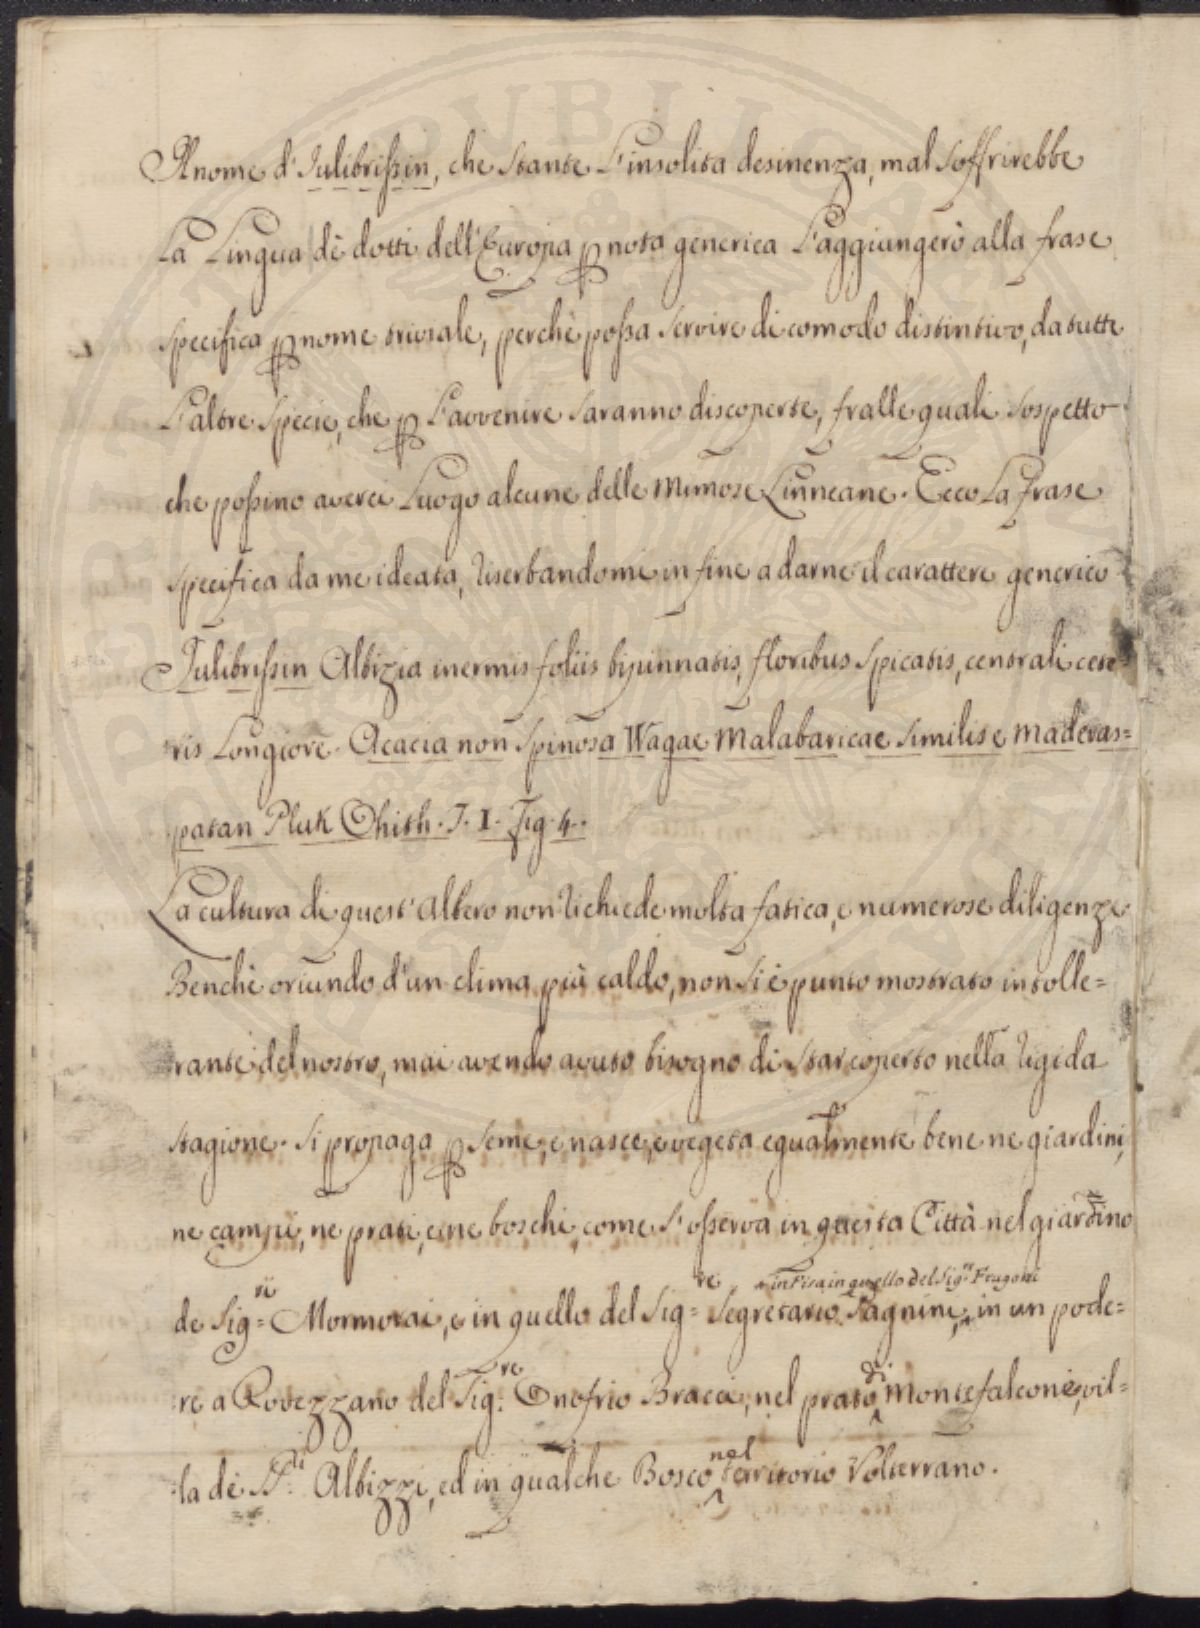 Il nome d'Iulibrissin, che stante l'insolita desinenza, mal soffrirebbe
La Lingua de dotti dell'Europa p nota generica l'aggiungerò alla frase
specifica p nome triviale, perchè possa servire di comodo distintivo, da tutte
l'altre specie, che p l'avvenire saranno discoperte, fralle quali sospetto
che possino averci Luogo alcune delle Mimose Linneane. Ecco La frase
specifica da me ideata, riserbandomi in fine a darne il carattere generico
Iulibrissin Albizia inermis foliis bipinnatis, floribus spicatis, centrali cete=
ris Longiore. Acacia non spinosa Wagae Malabaricae similis e Maderas=
patan Pluk Phith. T. I. Fig. 4.
La cultura di quest'Albero non richiede molta fatica, e numerose diligenze
Benchè oriundo d'un clima più caldo, non si è punto mostrato intolle=
rante del nostro, mai avendo avuto bisogno di star coperto nella rigida
stagione. Si propaga p seme, e nasce, e vegeta egualmente bene ne giardini,
ne campi, ne prati, e ne boschi, come s'osserva in questa Città nel giardino
in Pisa in quello del Sig.re Fragoni
de Sig=ri Mormorai, e in quello del Sig=re Segretario Pagnini, in un pode=
re a Rovezzano del Sig.re Onofrio Bracci, nel prato di Montefalcone, vil=
la de SS.ri Albizzi, ed in qualche Bosco nel territorio Volterrano.